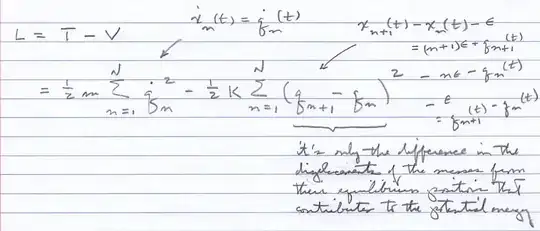 L = T − V
ẋₙ(t) = q̇ₙ(t)
xₙ₊₁(t) − xₙ(t) − ε
= (n+1)ε + qₙ₊₁(t)
− nε − qₙ(t)
− ε
= qₙ₊₁(t) − qₙ(t)
= ½ m ∑ₙ₌₁ᴺ q̇ₙ² − ½ K ∑ₙ₌₁ᴺ (qₙ₊₁ − qₙ)²
it's only the difference in the
displacements of the masses from
their equilibrium position that
contributes to the potential energy